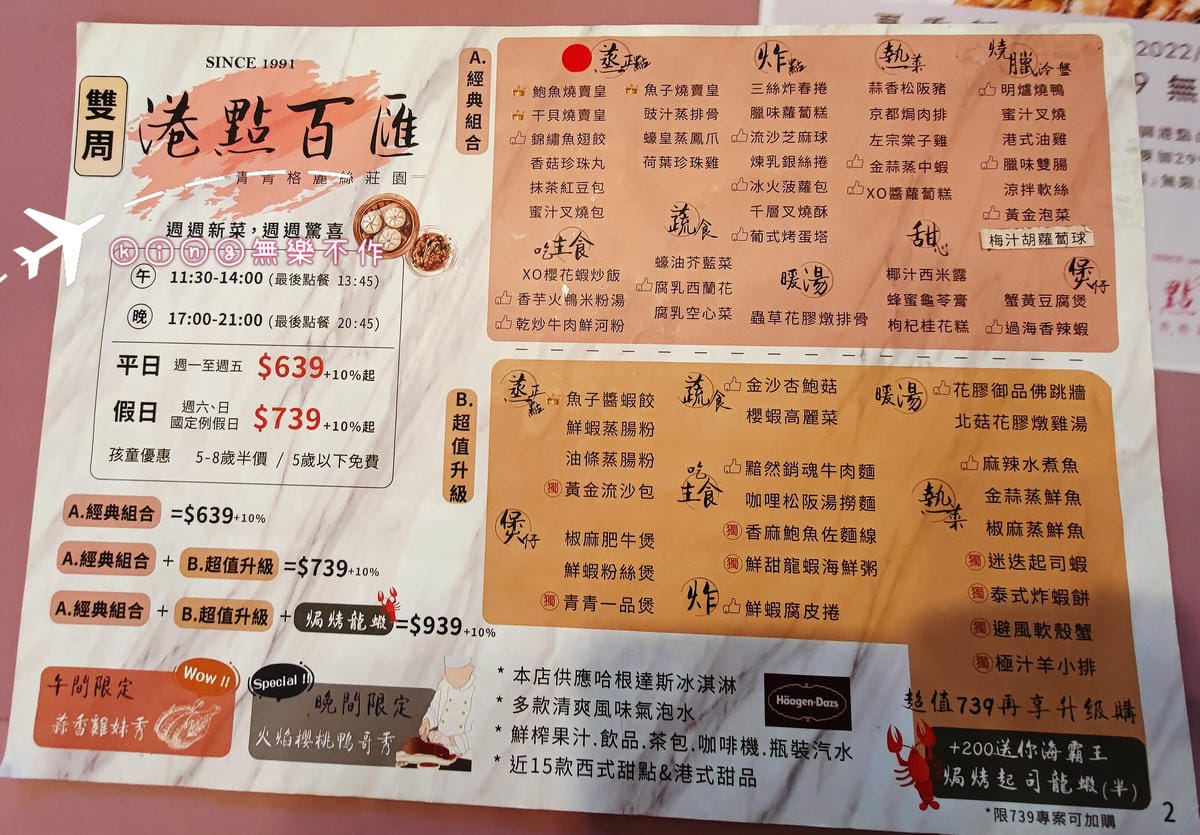 SINCE 1991
雙周
港點百匯
青青格麗絲莊園
週週新菜，週週驚喜
king無樂不作
午 11:30-14:00 (最後點餐 13:45)
晚 17:00-21:00 (最後點餐 20:45)
平日 週一至週五 $639+10%起
假日 週六、日 國定例假日 $739+10%起
孩童優惠 5-8歲半價 / 5歲以下免費
A.經典組合 =$639+10%
A.經典組合 + B.超值升級 =$739+10%
A.經典組合 + B.超值升級 + 焗烤龍蝦 =$939+10%
Wow !!
午間限定
蒜香雞妹秀
Special !!
晚間限定
火焰櫻桃鴨哥秀
A.經典組合
蒸正點
鮑魚燒賣皇
干貝燒賣皇
錦繡魚翅餃
香菇珍珠丸
抹茶紅豆包
蜜汁叉燒包
魚子燒賣皇
豉汁蒸排骨
蠔皇蒸鳳爪
荷葉珍珠雞
吃主食
XO櫻花蝦炒飯
香芋火鴨米粉湯
乾炒牛肉鮮河粉
蔬食
蠔油芥藍菜
腐乳西蘭花
腐乳空心菜
炸點
三絲炸春捲
臘味蘿蔔糕
流沙芝麻球
煉乳銀絲捲
冰火菠蘿包
千層叉燒酥
葡式烤蛋塔
暖湯
蟲草花膠燉排骨
熱菜
蒜香松阪豬
京都焗肉排
左宗棠子雞
金蒜蒸中蝦
XO醬蘿蔔糕
甜心
椰汁西米露
蜂蜜龜苓膏
枸杞桂花糕
燒臘冷盤
明爐燒鴨
蜜汁叉燒
港式油雞
臘味雙腸
涼拌軟絲
黃金泡菜
梅汁胡蘿蔔球
煲仔
蟹黃豆腐煲
過海香辣蝦
B.超值升級
蒸正點
魚子醬蝦餃
鮮蝦蒸腸粉
油條蒸腸粉
獨 黃金流沙包
煲仔
椒麻肥牛煲
鮮蝦粉絲煲
獨 青青一品煲
蔬食
金沙杏鮑菇
櫻蝦高麗菜
吃主食
黯然銷魂牛肉麵
咖哩松阪湯撈麵
獨 香麻鮑魚佐麵線
獨 鮮甜龍蝦海鮮粥
炸
鮮蝦腐皮捲
暖湯
花膠御品佛跳牆
北菇花膠燉雞湯
熱菜
麻辣水煮魚
金蒜蒸鮮魚
椒麻蒸鮮魚
獨 迷迭起司蝦
獨 泰式炸蝦餅
獨 避風軟殼蟹
獨 極汁羊小排
* 本店供應哈根達斯冰淇淋
* 多款清爽風味氣泡水
* 鮮榨果汁.飲品.茶包.咖啡機.瓶裝汽水
* 近15款西式甜點&港式甜品
Häagen-Dazs
超值739再享升級購
+200送你海霸王
焗烤起司龍蝦(半)
*限739專案可加購
2
2022/
9 無
點